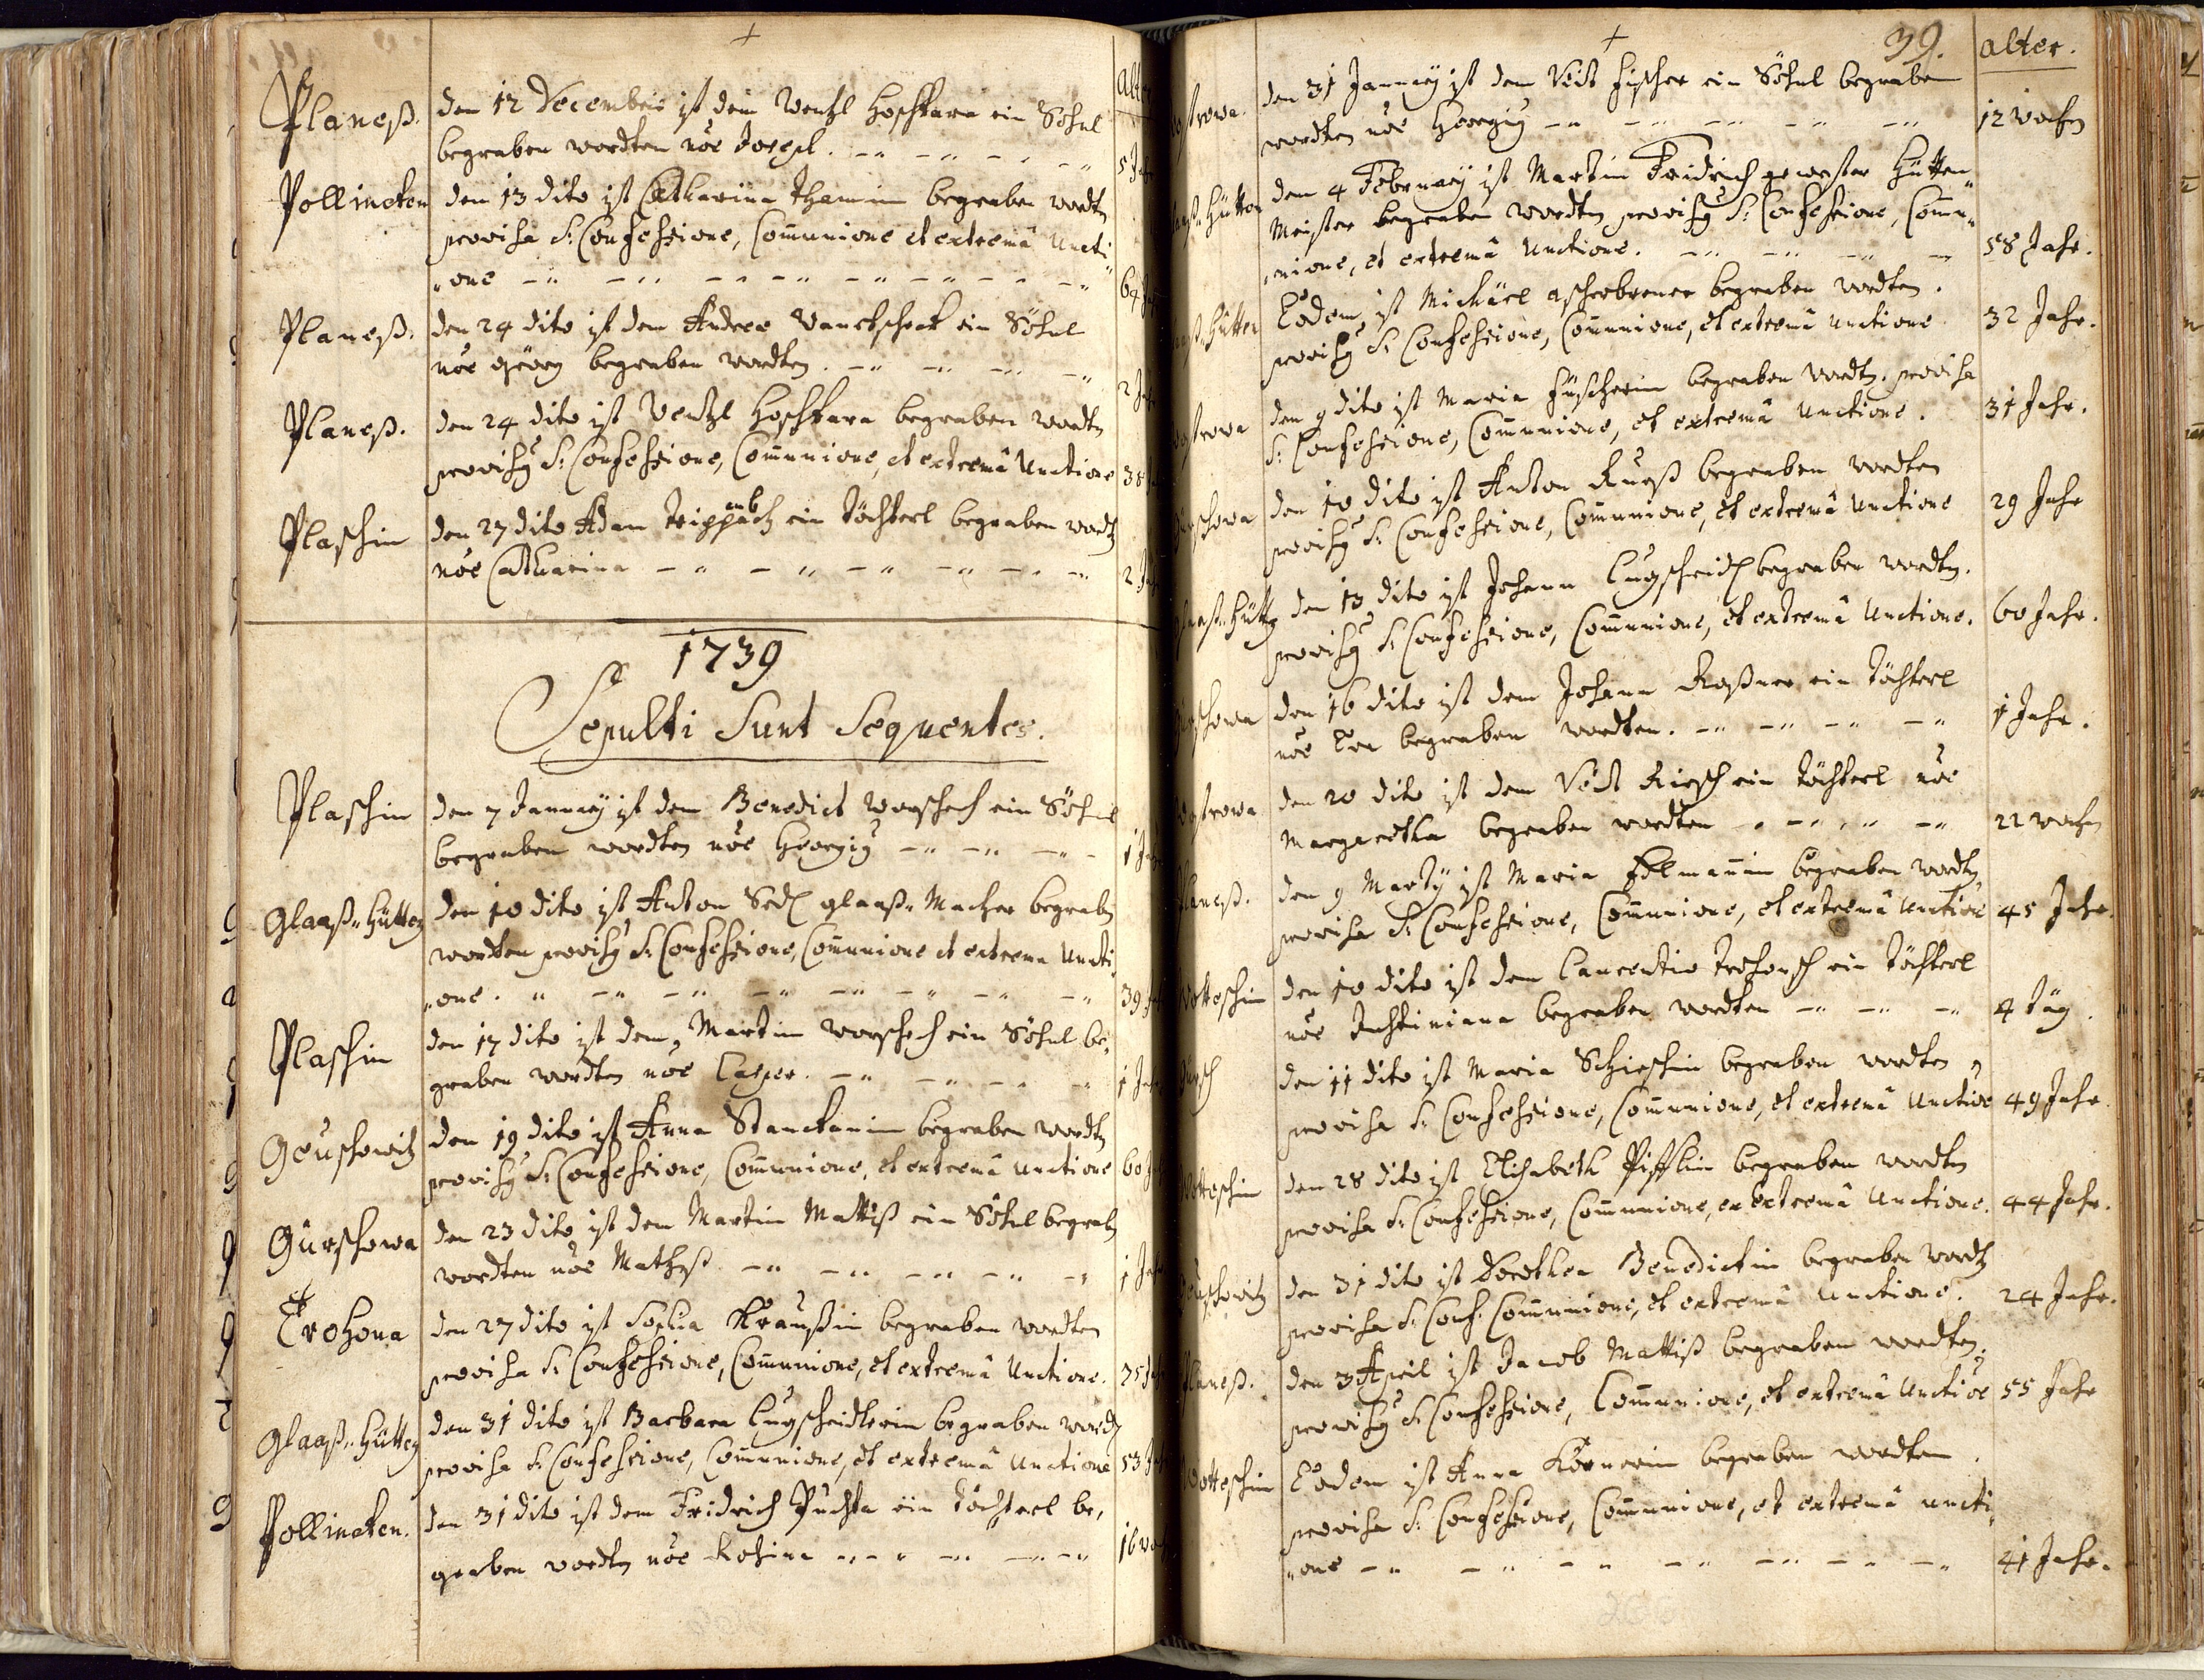 Alter
Planeß. den 12 Decembris ist dem Wentzl Hoschkara ein Söhnl
begraben wordten nõe Joseph. 5 Jahr
Pollincken den 13 dito ist Catharina Thamin begraben wordtn
provisa S: Confessione, Com̃unione et extremâ Uncti
one 64
Planeß. den 24 dito ist dem Andree ein Söhnl
nõe Georg begraben wordten. 2 Jahr
Planeß. den 24 dito ist Wentzl Hoschkara begraben wordtn
provisg S: Confessione, Com̃unione, et extremâ Unctione 38
Plaschin den 27 dito Adam ein Töchterl begraben wordtn
nõe Catharina 2 Jahr
1739
Sepulti Sunt Sequentes.
Plaschin den 7 January ist dem Benedict Worschech ein Söhnl
begraben wordten nõe Georgig 1 Jahr
Glaaß„Hütten den 10 dito ist Anton glaaß„Macher begrabn
wordten provisg S: Confessione, Com̃unione et extrema Uncti
„one. 39
Plaschin den 17 dito ist dem Martin Worschech ein Söhnl be,
graben wordten nõe Casper. 1 Jahr
Geuschowitz den 19 dito ist Anna Stanckanin begraben wordtn
provisg S: Confessione, Com̃unione, et extremâ unctione 60
Gurschowa den 23 dito ist dem Martin Mattiß ein Söhnl begrabn
wordten nõe Mathyß. 1 Jahr
Trohona den 27 dito ist Sophia Kraußin begraben wordten
provisa S: Confessione, Com̃unione, et extremâ Unctione. 75
Glaaß„Hütten den 31 dito ist Barbara Lugscheidterin begraben wordtn
provisa S: Confessione, Com̃unione, et extremâ unctione 53
Pollincken. den 31 dito ist dem Fridrich Puchta ein Töchterl be,
graben wordtn nõe Rosina 16 woch
39. alter.
ostrowa. den 31 January ist dem Veit Fischer ein Söhnl begraben
wordten nõe Georgig 12 wochn
Hütten den 4 February ist Martin Fridrich gewester Hütten„
Meister begraben wordten provisg S: Confessione, Com̃u„
„nione, et extremâ Unctione. 58 Jahr.
Hütten Eodem ist Michäel Ascherbrener begraben wordten.
provisg S: Confessione, Com̃unione, et extremâ unctione 32 Jahr.
ostrowa den 9 dito ist Maria Füscherin begraben wordtn. provisa
S: Confessione, Com̃unione, et extremâ Unctione. 31 Jahr.
schowa den 10 dito ist Anton begraben wordten
provisg S: Confessione, Com̃unione, et extremâ unctione 29 Jahr
Hüttn den 13 dito ist Johann Lugscheid begraben wordten.
provisg S: Confessione, Com̃unione, et extremâ Unctione. 60 Jahr.
schowa den 16 dito ist dem Johann Roßner ein Töchterl
nõe Eva begraben wordten. 1 Jahr.
ostrowa den 20 dito ist dem Veit ein Töchterl nõe
Margaretha begraben wordten 22 wochn
laneß. den 9 Marty ist Maria begraben wordtn
provisa S: Confessione, Com̃unione, et extremâ Unctiõe 45 Jahr.
Wotteschin den 10 dito ist dem Laurentio ein Töchterl
nõe Justiniana begraben wordten 4 täg.
den 11 dito ist Maria begraben wordten
provisa S: Confessione, Com̃unione, et extremâ Unctiõe 49 Jahr.
Wotteschin den 28 dito ist Elisabeth begraben wordten
provisa S: Confessione, Com̃unione, ex extremâ Unctione. 44 Jahr.
schowitz den 31 dito ist Dorothea Benedictin begraben wordtn
provisa S: Conf: Com̃unione, et extremâ Unctione. 24 Jahr.
laneß. den 3 April ist Jacob Mattiß begraben wordten.
provisg S: Confessione, Com̃unione, et extremâ Unctiõe 55 Jahr
Wotteschin Eodem ist Anna Körnerin begraben wordten.
provisa S: Confessione, Com̃unione, et extremâ uncti„
„one 41 Jahr.